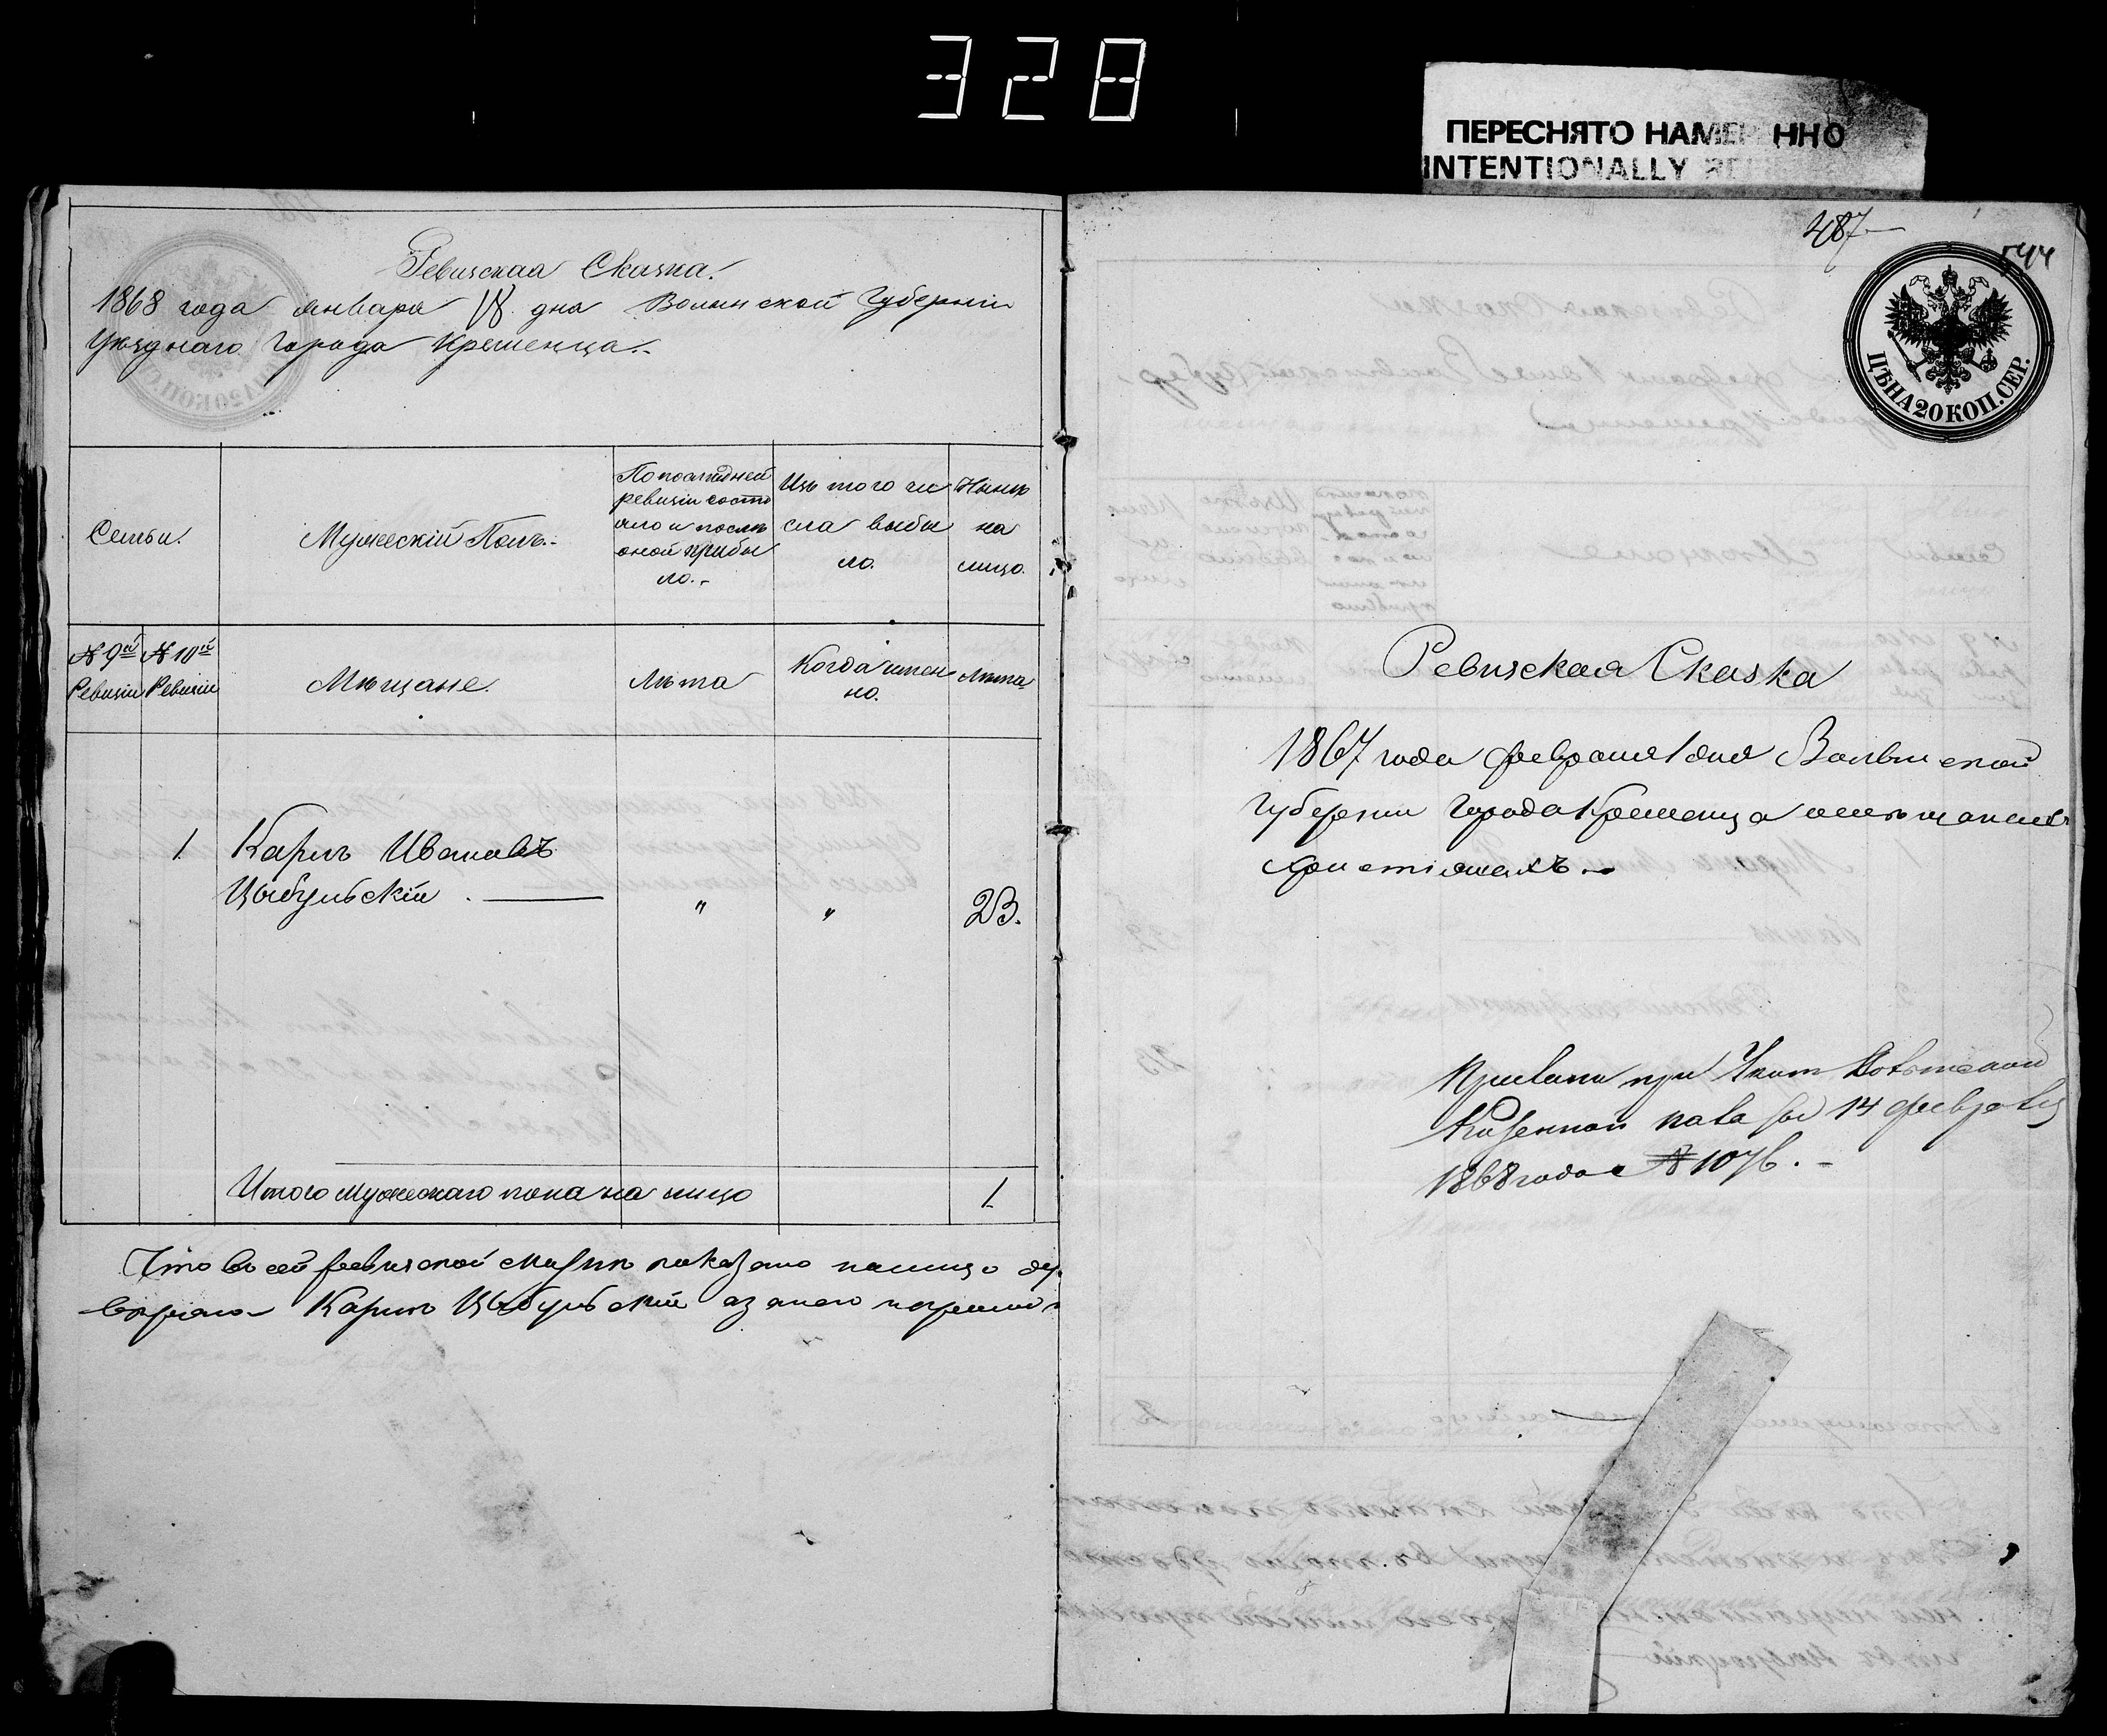 328
ПЕРЕСНЯТО НАМЕР ННО
INTENTIONALLY
Ревизская Сказка.
1868 года января 18 дня Волынской Губерніи
Уѣзднаго Города Кременца.-
Семьи.
Мужескій Полъ.-
По послѣдней
ревизіи состо
яло и послѣ
оной прибы
ло.-
Изъ того чи
сла выбы
ло.
Нынѣ
на
лицо.
№ 9й
Ревизіи
№ 10й
Ревизіи
Мѣщане.
Лѣта
Когда имен
но.
Лѣта
1. Карлъ Ивановъ
Цыбульскій. " " 23.
Итого мужескаго пола на лицо 1
Что въ сей ревизской сказкѣ показано налицо
Карлъ Цыбульскій
487
544
ЦѢНА 20 КОП. СЕР.
Ревизская Сказка
1867 года февраля 1 дня Волынской
Губерніи Города Кременца о мѣщанахъ
христіянахъ.-
при Указѣ
Казенной Палаты 14 февраля
1868 года № 1076.-